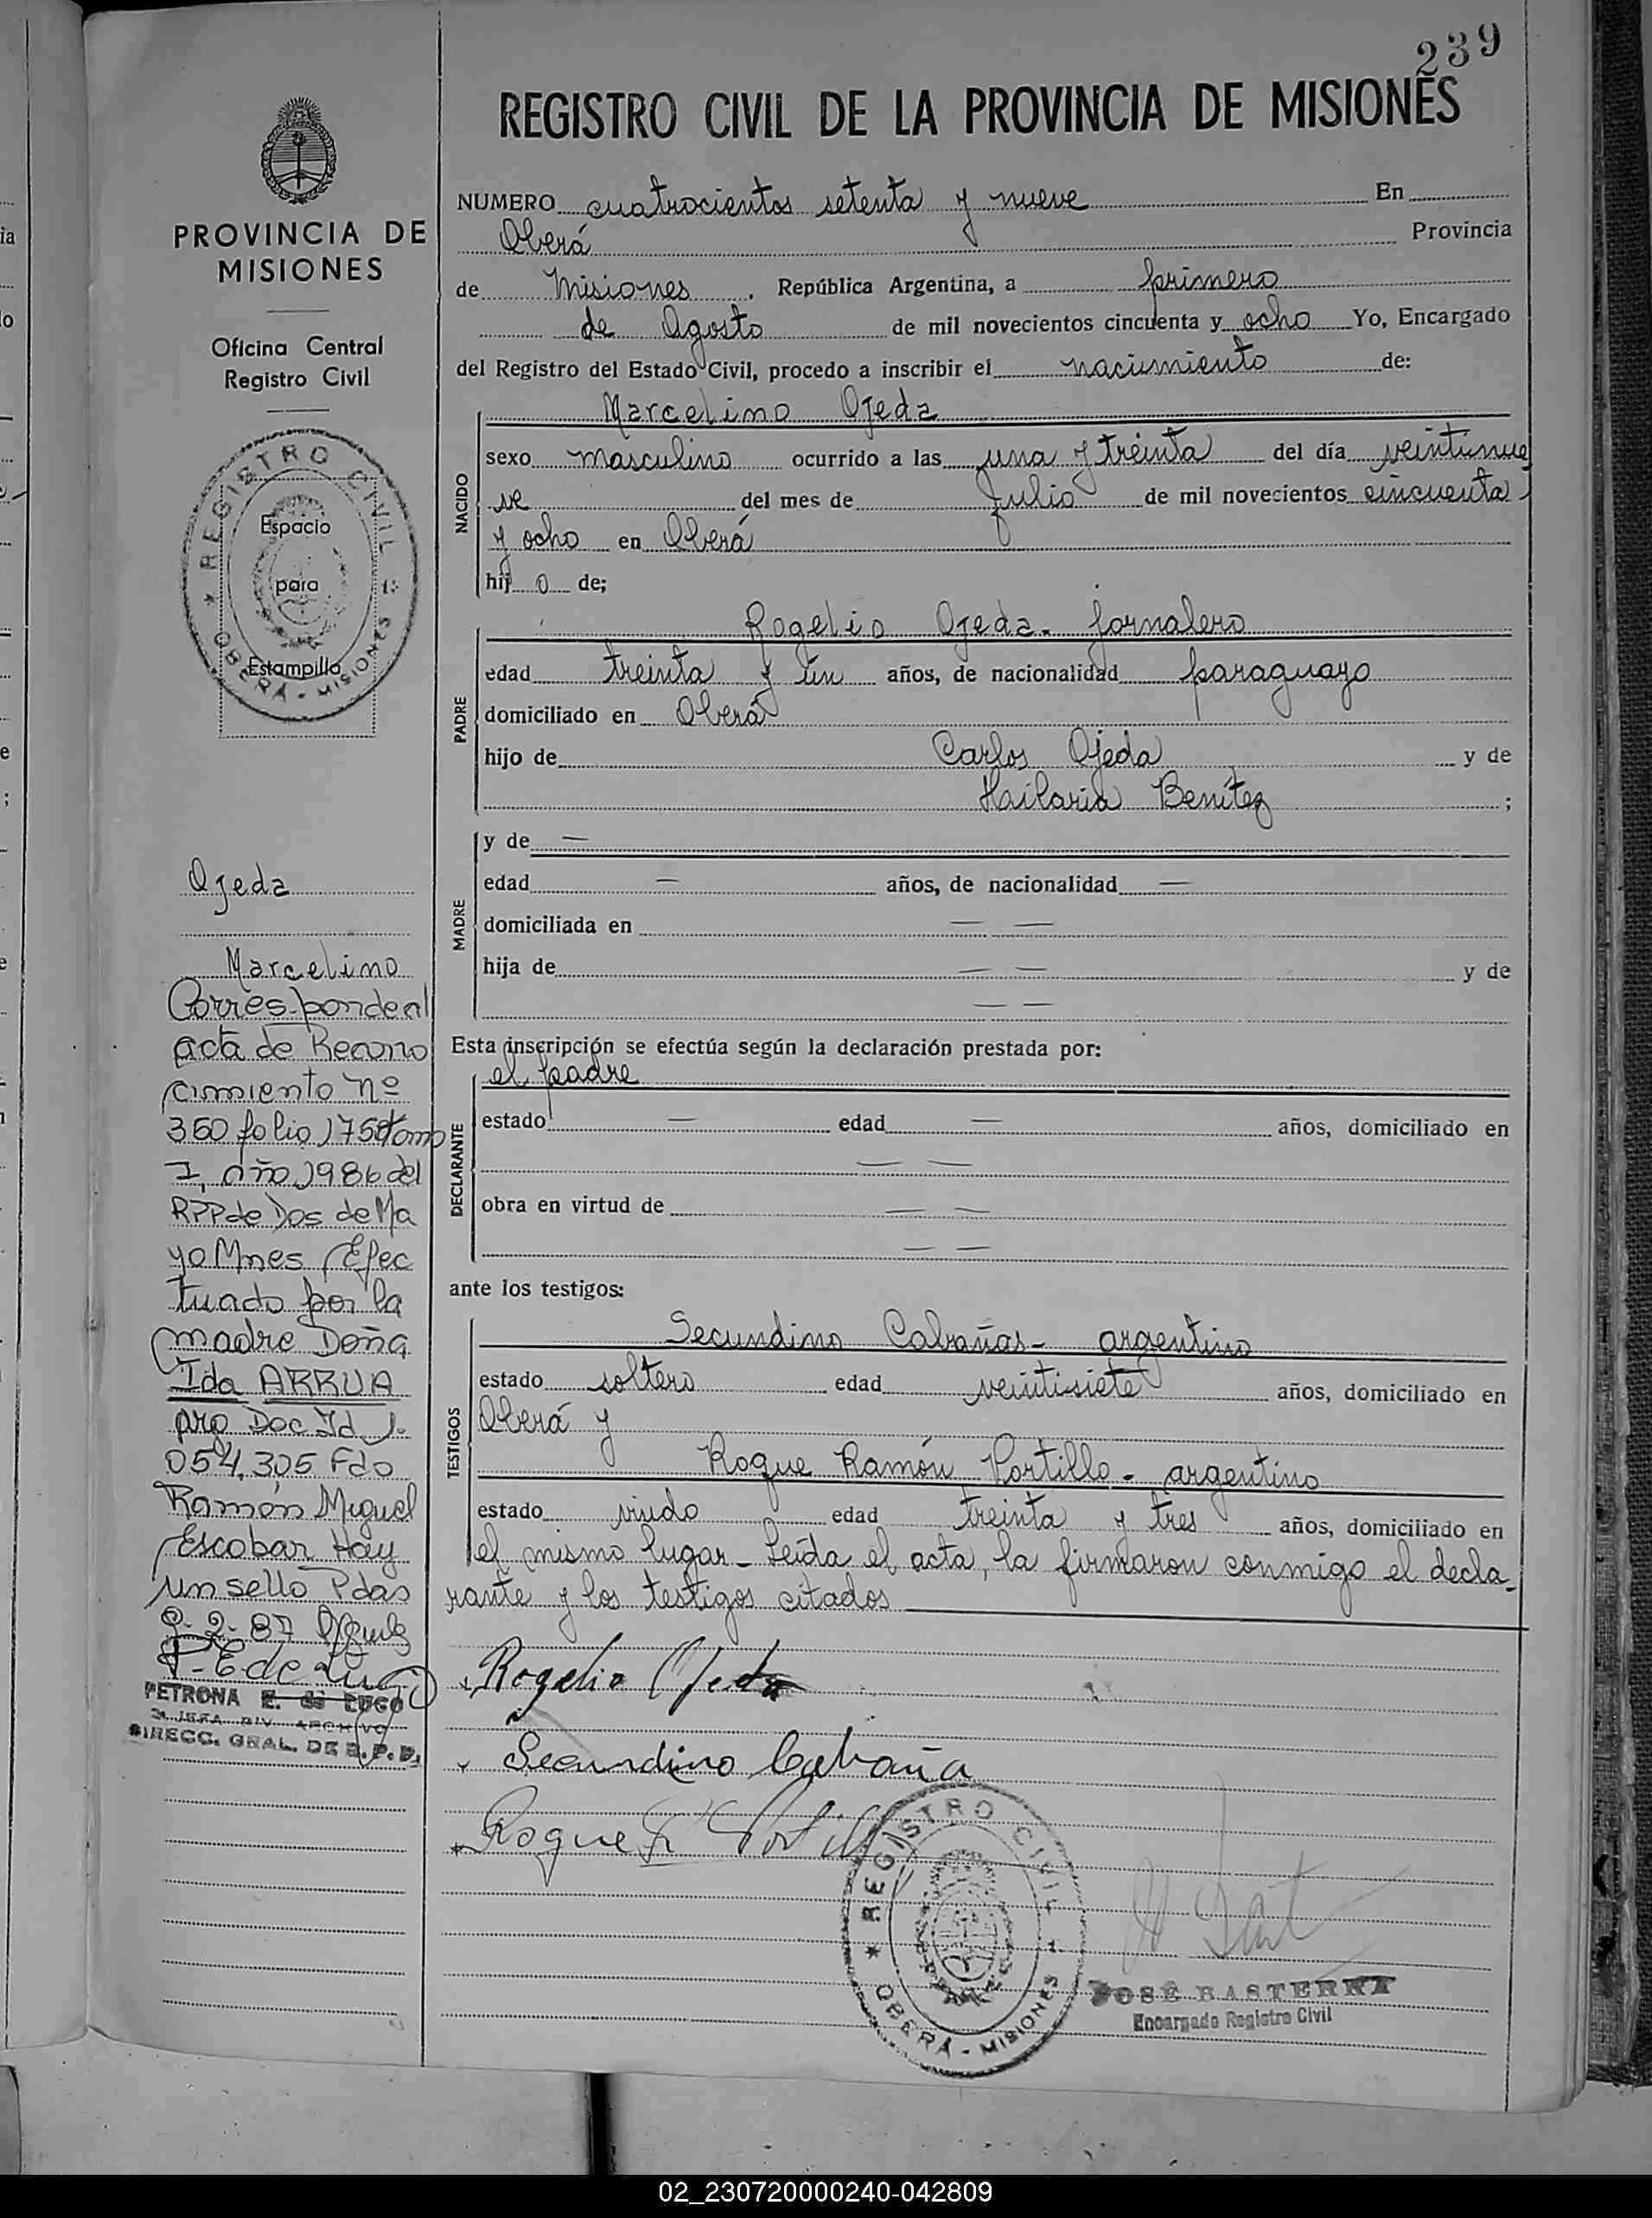 239
REGISTRO CIVIL DE LA PROVINCIA DE MISIONES
PROVINCIA DE
MISIONES
Oficina Central
Registro Civil
REGISTRO CIVIL
OBERÁ - MISIONES
Espacio
para
Estampilla
NUMERO cuatrocientos setenta y nueve En
Oberá Provincia
de Misiones, República Argentina, a primero
de Agosto de mil novecientos cincuenta y ocho Yo, Encargado
del Registro del Estado Civil, procedo a inscribir el nacimiento de:
NACIDO
Marcelino Ojeda
sexo masculino ocurrido a las una y treinta del día veintinue
ve del mes de Julio de mil novecientos cincuenta
y ocho en Oberá
hij o de;
PADRE
Rogelio Ojeda. jornalero
edad treinta y un años, de nacionalidad paraguayo
domiciliado en Oberá
hijo de Carlos Ojeda y de
Hailaria Benítez ;
MADRE
y de —
edad — años, de nacionalidad —
domiciliada en — —
hija de — — y de
— —
Esta inscripción se efectúa según la declaración prestada por:
DECLARANTE
el padre
estado — edad — años, domiciliado en
— —
obra en virtud de — —
— —
ante los testigos:
TESTIGOS
Secundino Cabañas - argentino
estado soltero edad veintisiete años, domiciliado en
Oberá y
Roque Ramón Portillo - argentino
estado viudo edad treinta y tres años, domiciliado en
el mismo lugar - Leída el acta, la firmaron conmigo el decla-
rante y los testigos citados
Rogelio Ojeda
Secundino Cabaña
Roque R Portillo
REGISTRO CIVIL
OBERÁ - MISIONES
JOSE BASTERRA
Encargado Registro Civil
Ojeda
Marcelino
Corresponde al
acta de Recono
cimiento Nº
350 folio 175 tomo
I, año 1986 del
RPP de Dos de Ma
yo Mnes Efec
tuado por la
madre Doña
Ida ARRUA
pro Doc Id 1.
054.305 Fdo
Ramón Miguel
Escobar Hay
un sello Pdas
9-2-87
P. E de Lugo
PETRONA E. de LUGO
JEFA DIV. ARCHIVO
DIRECC. GRAL. DE R. P. P.
02_230720000240-042809